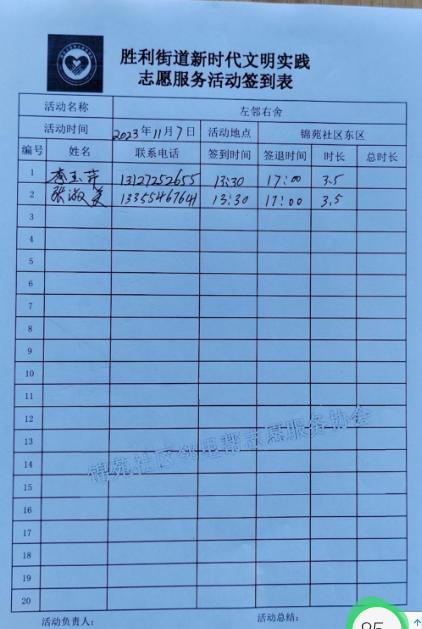 胜利街道新时代文明实践
志愿服务活动签到表
活动名称 左邻右舍
活动时间 2023年11月7日 活动地点 锦苑社区东区
编号 姓名 联系电话 签到时间 签退时间 时长 总时长
1 李玉萍 13127252655 13:30 17:00 3.5
2 张淑英 13355467641 13:30 17:00 3.5
3
4
5
6
7
8
9
10
11
12
13
14
15
16
17
18
19
20
锦苑社区邻里帮志愿服务协会
活动负责人: 活动总结: